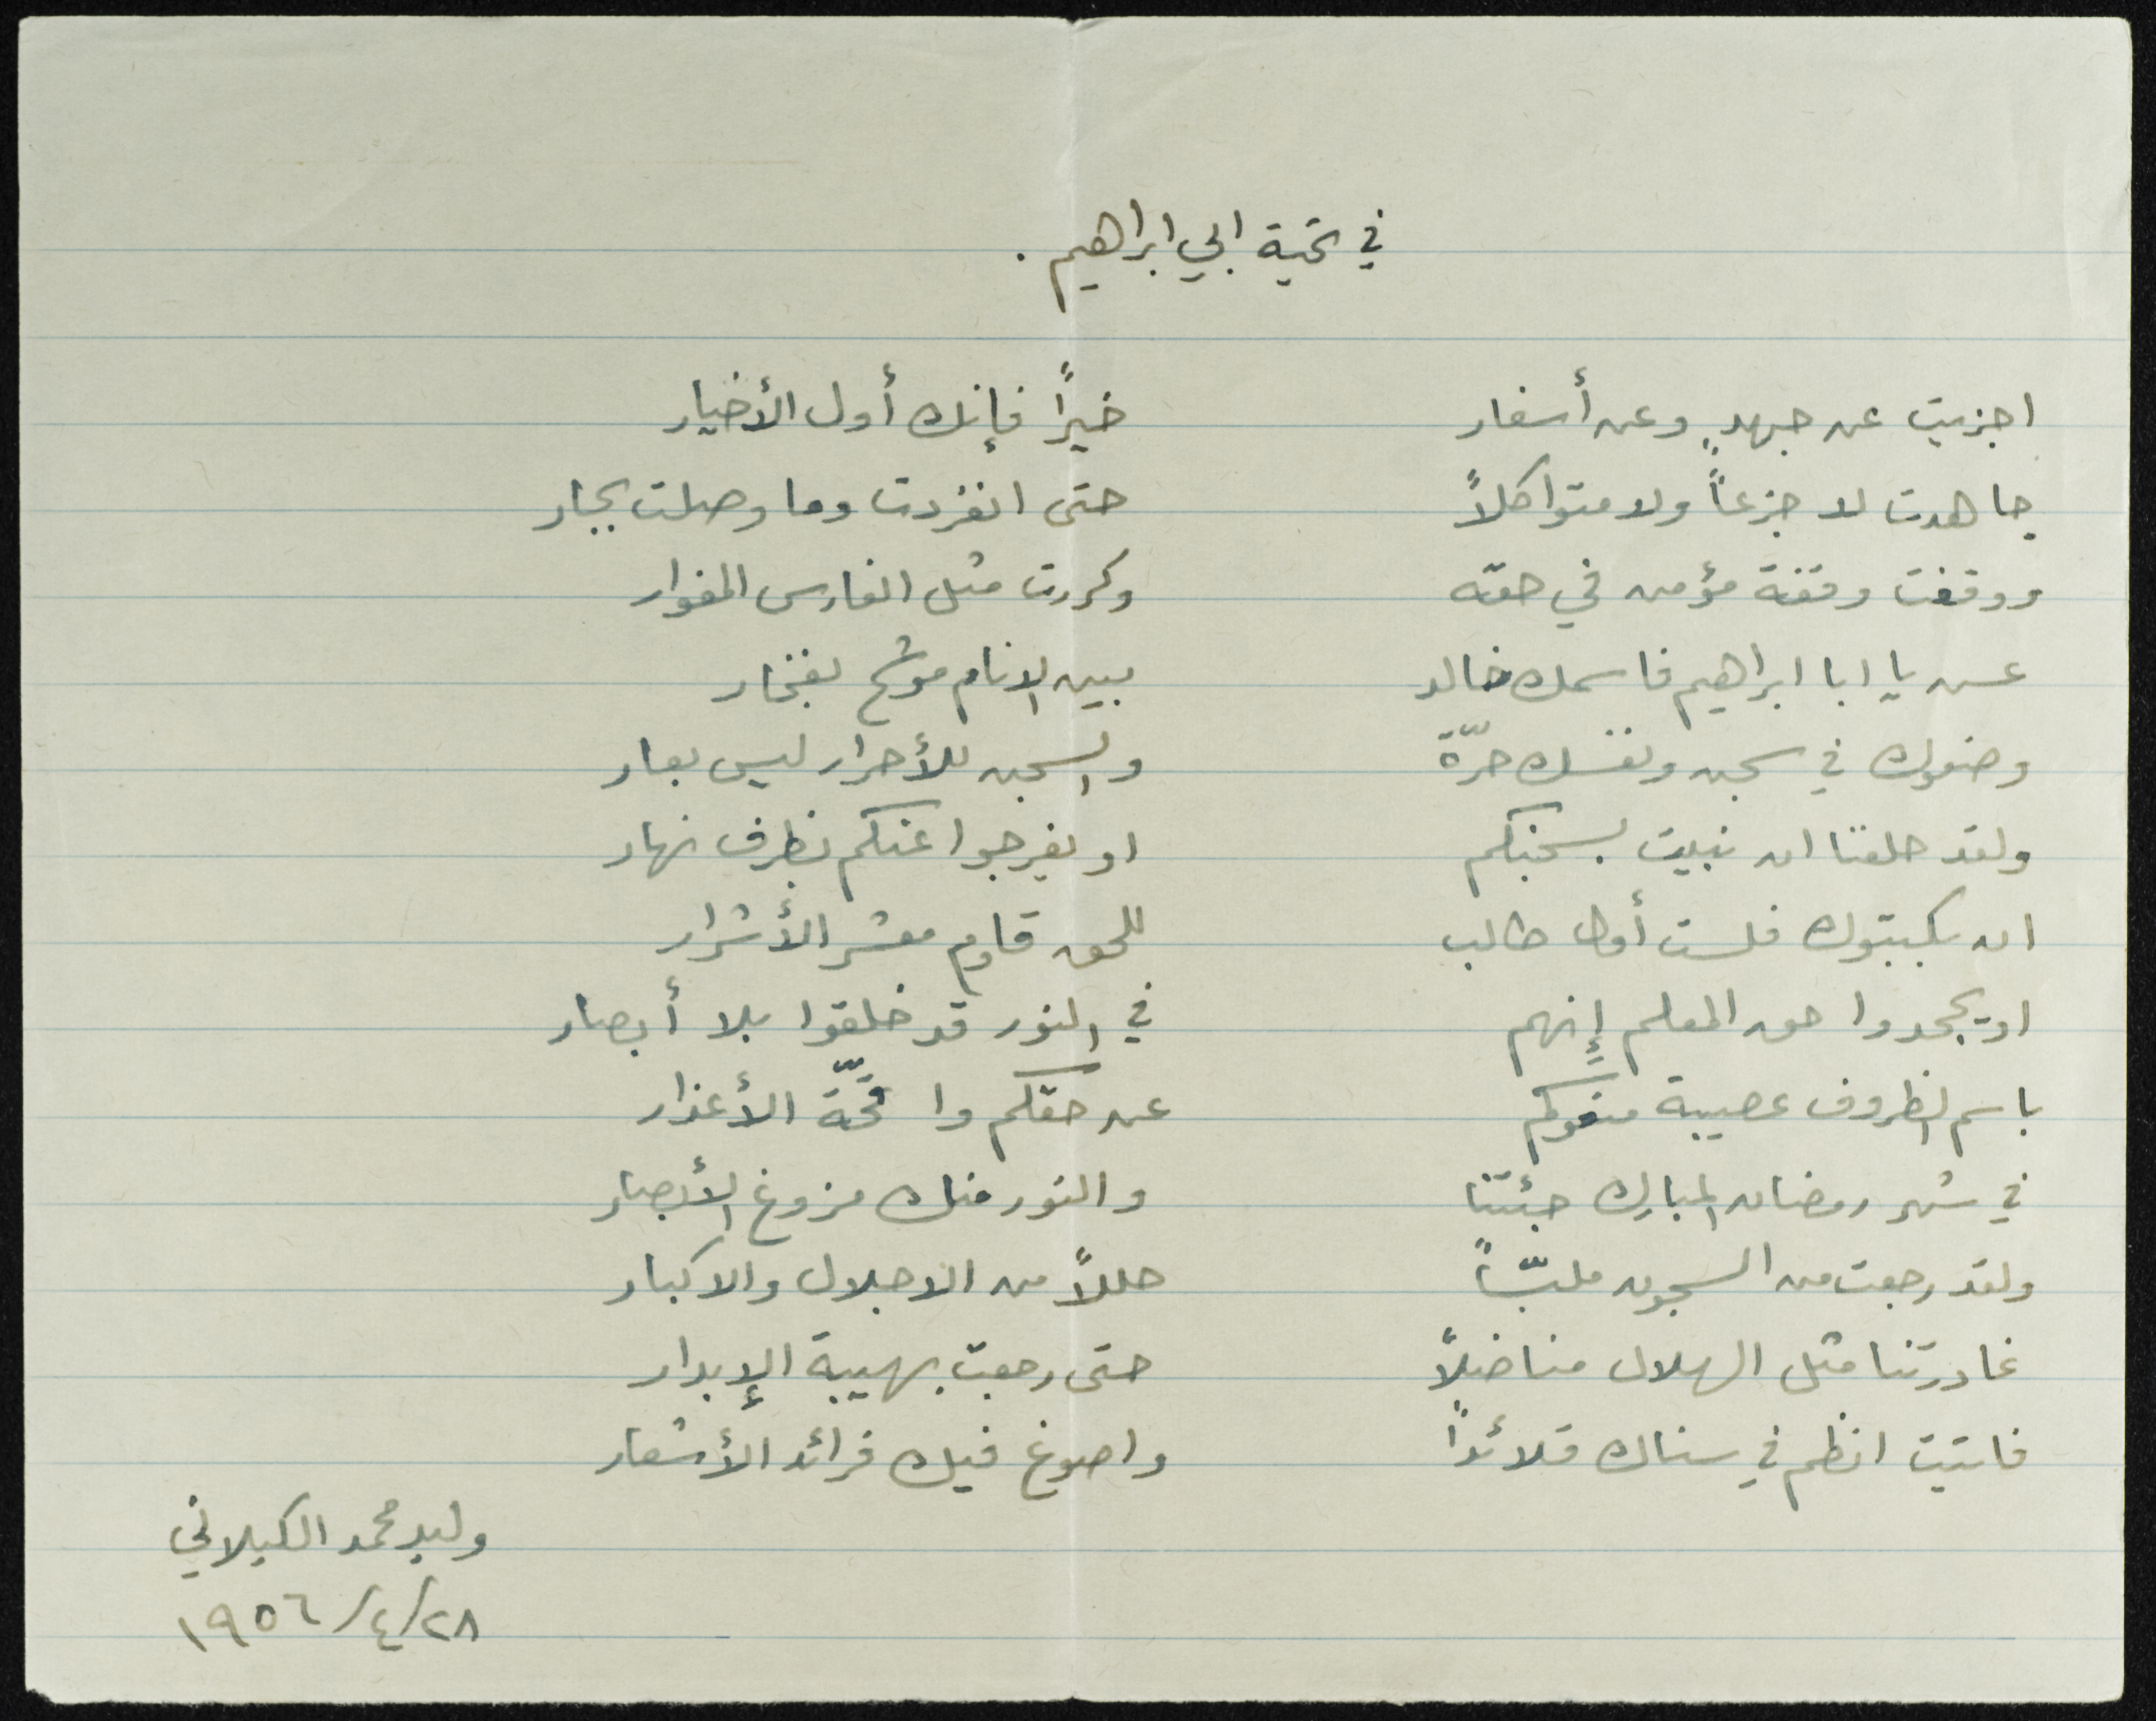 في تحية ابي ابراهيم .
اجزيت عن جهدٍ وعن أسفار خيراً فإنك أول الأخيار
جاهدت لا جزعاً ولا متواكلاً حتى انفردت وما وصلت بجار
ووقفت وقفة مؤمن في حقه وكررت مثل الفارس المغوار
عش يا ابا ابراهيم فاسمك خالد بين الانام موشح بفخار
وضعوك في سجن ونفسك حرّة والسجن للأحرار ليس بعار
ولقد حلفنا ان نبيت بسجنكم او يفرجوا عنكم بظرف نهار
ان يكبتوك فلست أول طالب للحق قاوم معشر الأشرار
او يجحدوا حق المعلم إنهم في النور قد خلقوا بلا أبصار
باسم الظروف عصيبة منعوكم عن حقكم وا قحّة الأعذار
في شهر رمضان المبارك جئتنا والنور منك مزوغ الأبصار
ولقد رجعت من السجون ملبّساً حللاً من الاجلال والاكبار
غادرتنا مثل الهلال مناضلاً حتى رجعت بهيبة الإبدار
فأتيت انظم في سناك قلائداً واصوغ فيك فرائد الأشعار
وليد محمد الكيلاني
٢٨/٤/١٩٥٦